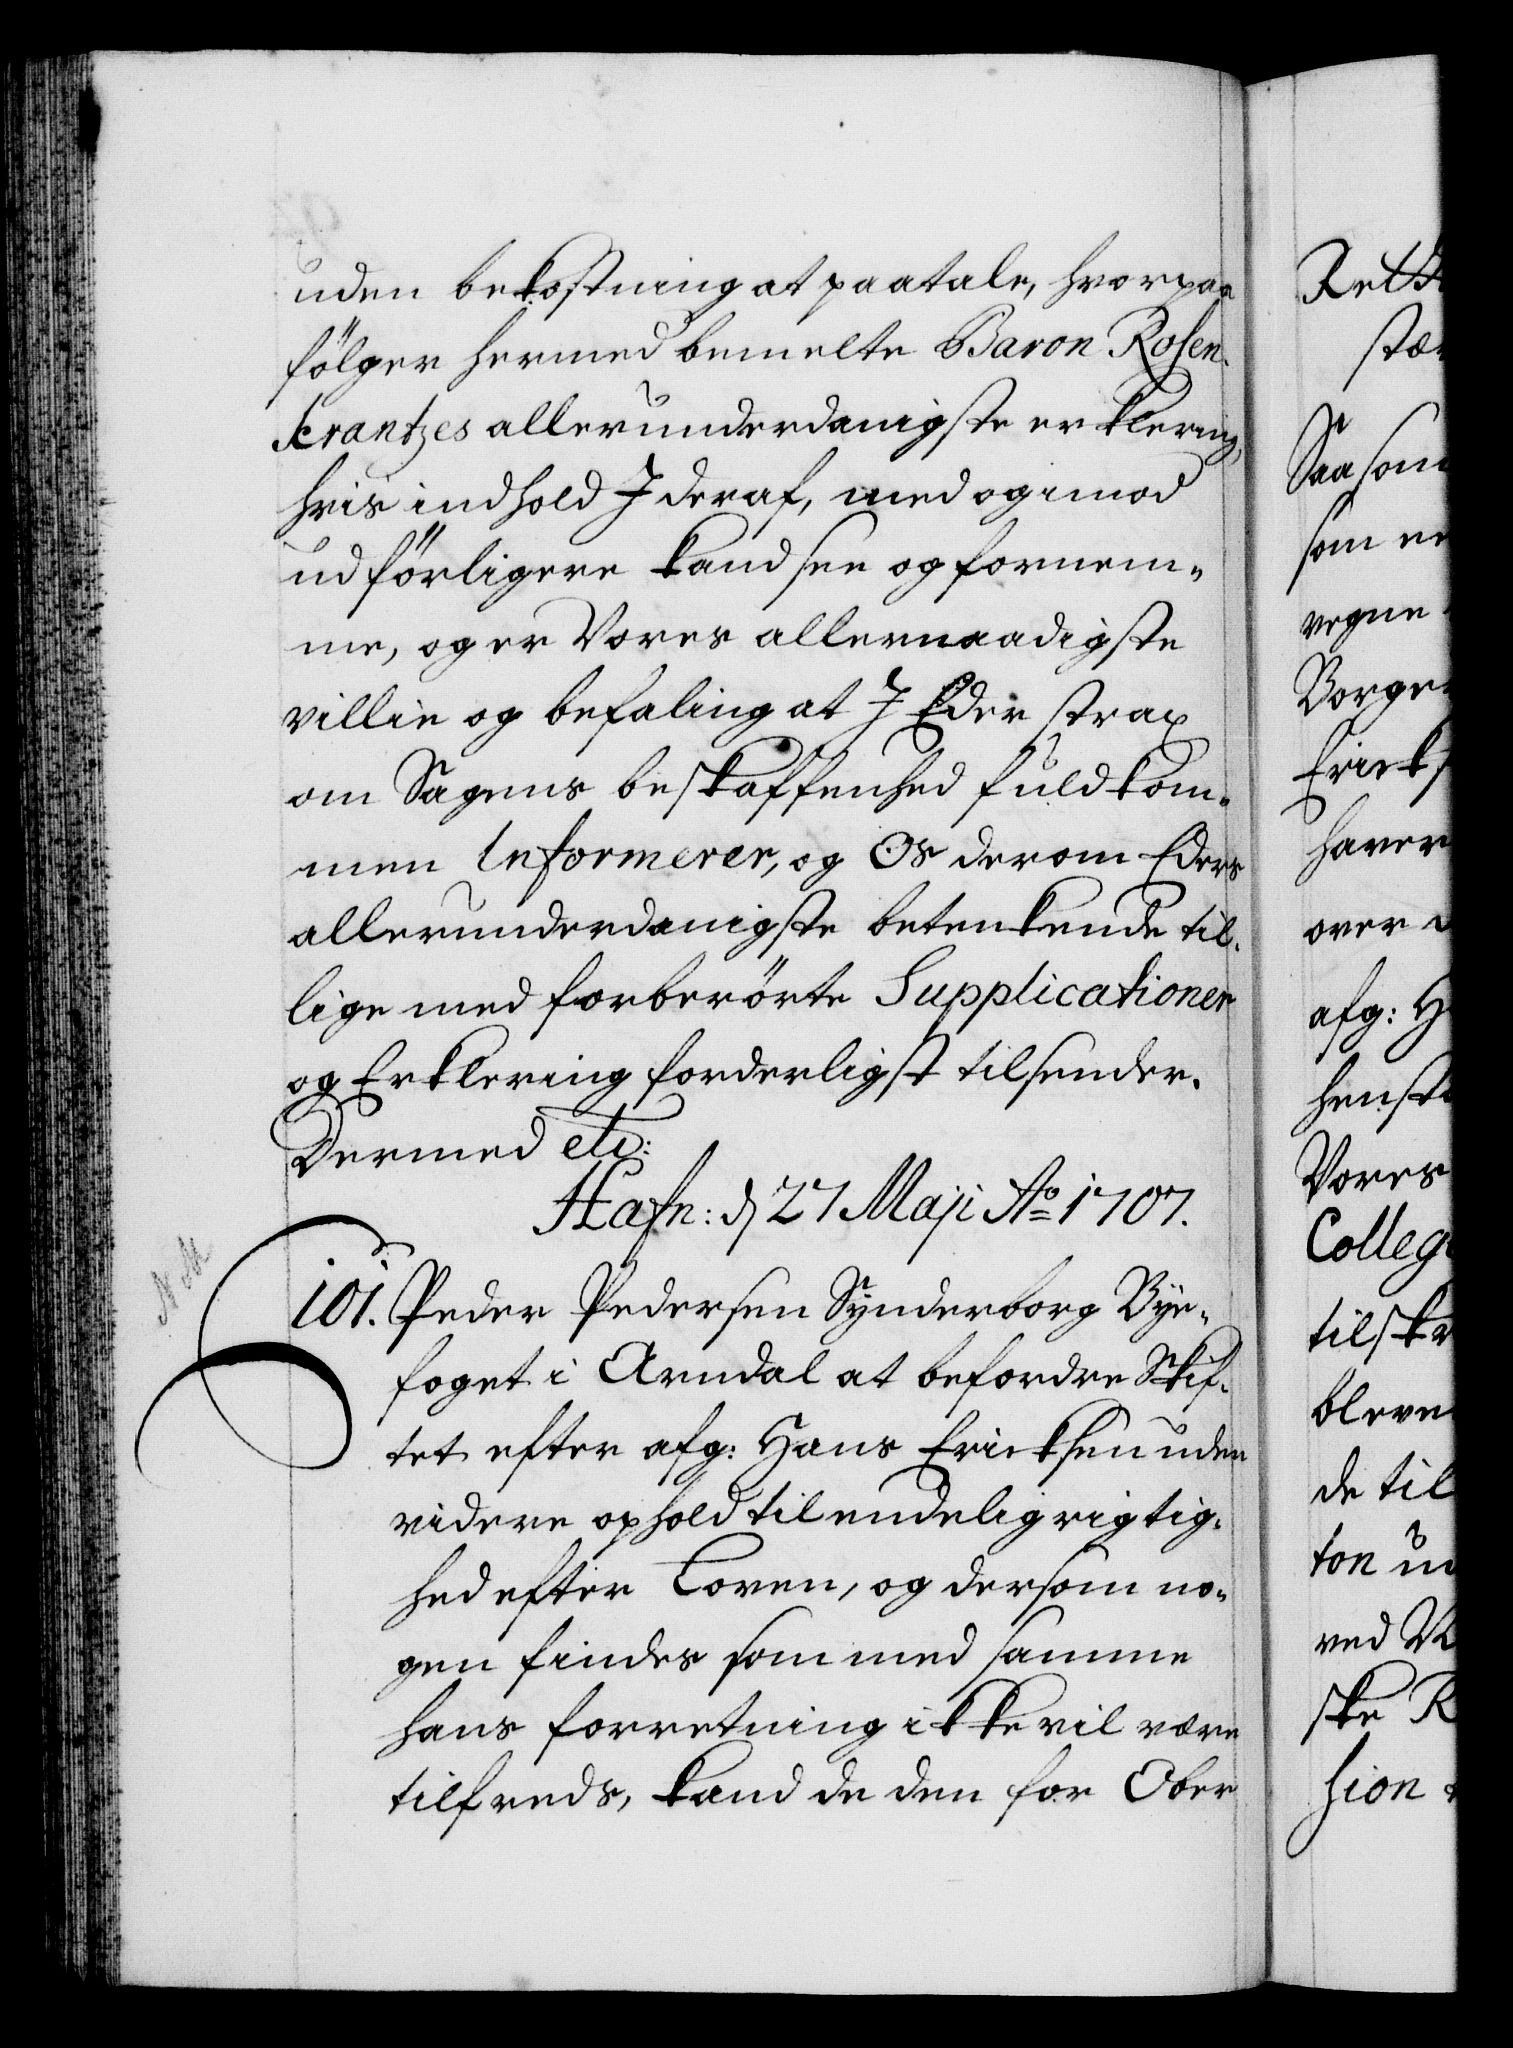 uden bekostning at paatale, hvorpaa
fölger hermed bemelte Baron Rosen-
krantzes allerunderdanigste erklering,
hvis indhold J deraf, med og imod
udförligere kand see og fornem-
me, og er Vores allernaadigste
villie og befaling at J Eder strax
om Sagens beskaffenhed fuldkom-
men Informerer, og Os derom Eders
allerunderdanigste betenkende til-
lige med forberörte Supplicationer
og Erklering forderligst tilsender.
Dermed etc:
Hafn: d 27 Maji Ao 1707.
N M
101. Peder Pedersen Synderborg Bye-
foget i Arndal at befordre Skif-
tet efter afg: Hans Ericksen uden
videre ophold til endelig rigtig-
hed efter Loven, og dersom no-
gen findes som med samme
hans forretning ikke vil være
tilfreds, kand de den for Ober
Saa som
som
vegne
Borge
Ericks
haver
over
afg: H
henst
Vores
Colleg
tilskr
bleve
de til
ton
ved
ske R
sion